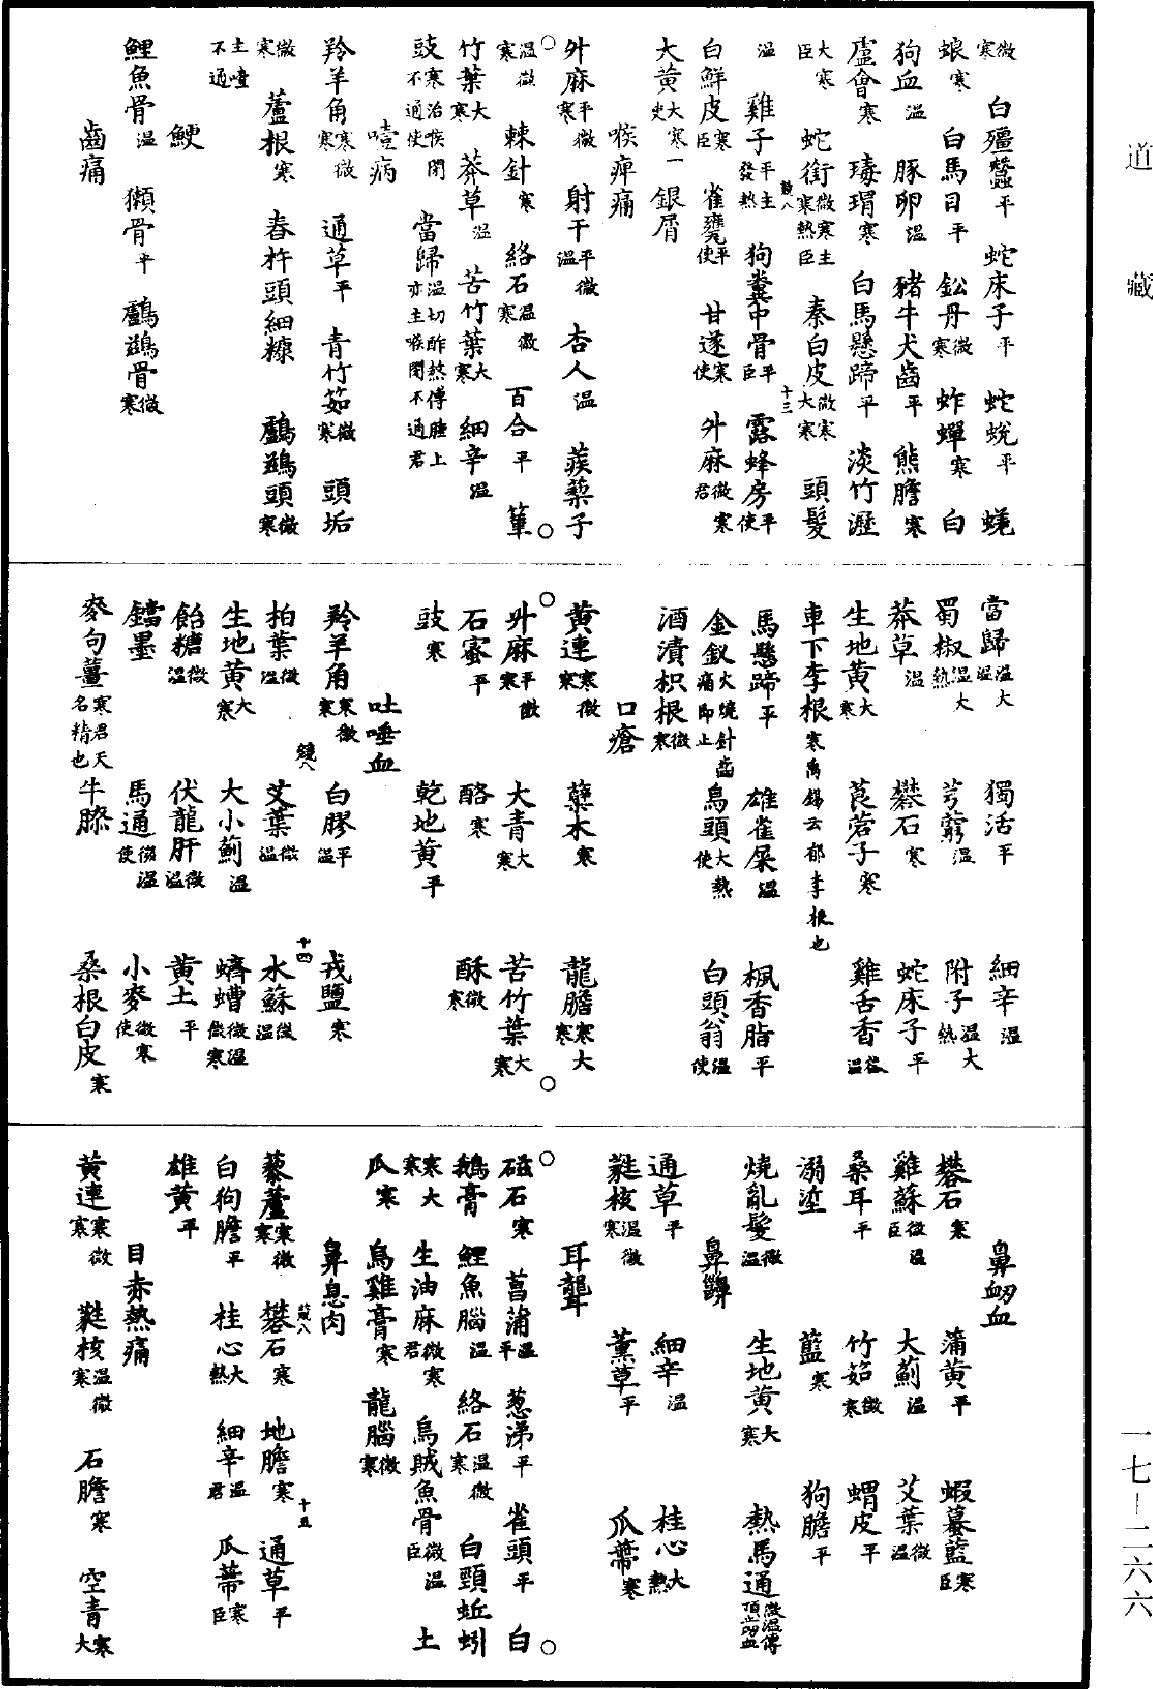 微寒　白殭蠶平　蛇床子平　蛇蛻平　蜣
蜋寒　白馬目平　鈆丹微寒　蚱蟬寒　白
狗血溫　豚卵溫　豬牛犬齒平　熊膽寒
盧會寒　瑇瑁寒　白馬懸蹄平　淡竹瀝
大寒臣　蛇銜微寒主寒熱臣　秦白皮微寒大寒　頭髮
溫　雞子平主發熱　狗糞中骨平臣　露蜂房平使
白鮮皮寒臣　雀甕平使　甘遂寒使　升麻微寒君
大黃大寒一使　銀屑
喉痺痛
升麻平微寒　射干平微溫　杏人溫　蒺蔾子
溫微寒　棘針寒　絡石溫微寒　百合平　篳
竹葉大寒　莽草溫　苦竹葉大寒　細辛溫
豉寒治喉閉不通使　當歸溫切酢熬傅腫上亦主喉閉不通君
噎病
羚羊角寒微寒　通草平　青竹茹微寒　頭垢
微寒　蘆根寒　舂杵頭細糠　鸕鷀頭微寒
主噎不通
鯁
鯉魚骨溫　獺骨平　鸕鷀骨微寒
齒痛
當歸溫大溫　獨活平　細辛溫
蜀椒溫大熱　芎藭溫　附子溫大熱
莽草溫　礬石寒　蛇床子平
生地黃大寒　莨菪子寒　雞舌香微溫
車下李根寒禹錫云郁李根也
馬懸蹄平　雄雀屎溫　楓香脂平
金釵火燒針齒痛即止　烏頭大熱使　白頭翁溫使
酒漬枳根微寒
口瘡
黃連寒微寒　蘗木寒　龍膽寒大寒
升麻平微寒　大青大寒　苦竹葉大寒
石蜜平　酪寒　酥微寒
豉寒　乾地黃平
吐唾血
羚羊角寒微寒　白膠平溫　戎鹽寒
柏葉微溫　艾葉微溫　水蘇微溫
生地黃大寒　大小薊溫　蠐螬微溫微寒
飴糖微溫　伏龍肝微溫　黃土平
鐺墨　馬通微溫使　小麥微寒使
麥句薑寒君天名精也　牛膝　桑根白皮寒
鼻衂血
礬石寒　蒲黃平　蝦蟇藍寒臣
雞蘇微溫臣　大薊溫　艾葉微溫
桑耳平　竹茹微寒　蝟皮平
溺垽　藍寒　狗膽平
燒亂髮微溫　生地黃大寒　熱馬通微溫傅頂止衂血
鼻齆
通草平　細辛溫　桂心大熱
蕤核溫微寒　薰草平　瓜蔕寒
耳聾
磁石寒　菖蒲溫平　葱涕平　雀頭平　白
鵝膏　鯉魚腦溫　絡石溫微寒　白頸蚯蚓
寒大寒　生油麻微寒君　烏賊魚骨微溫臣　土
瓜寒　烏雞膏寒　龍腦微寒
鼻息肉
藜蘆寒微寒　礬石寒　地膽寒　通草平
白狗膽平　桂心大熱　細辛溫君　瓜蔕寒臣
雄黃平
目赤熱痛
黃連寒微寒　蕤核溫微寒　石膽寒　空青寒大
道藏
一七—二六六